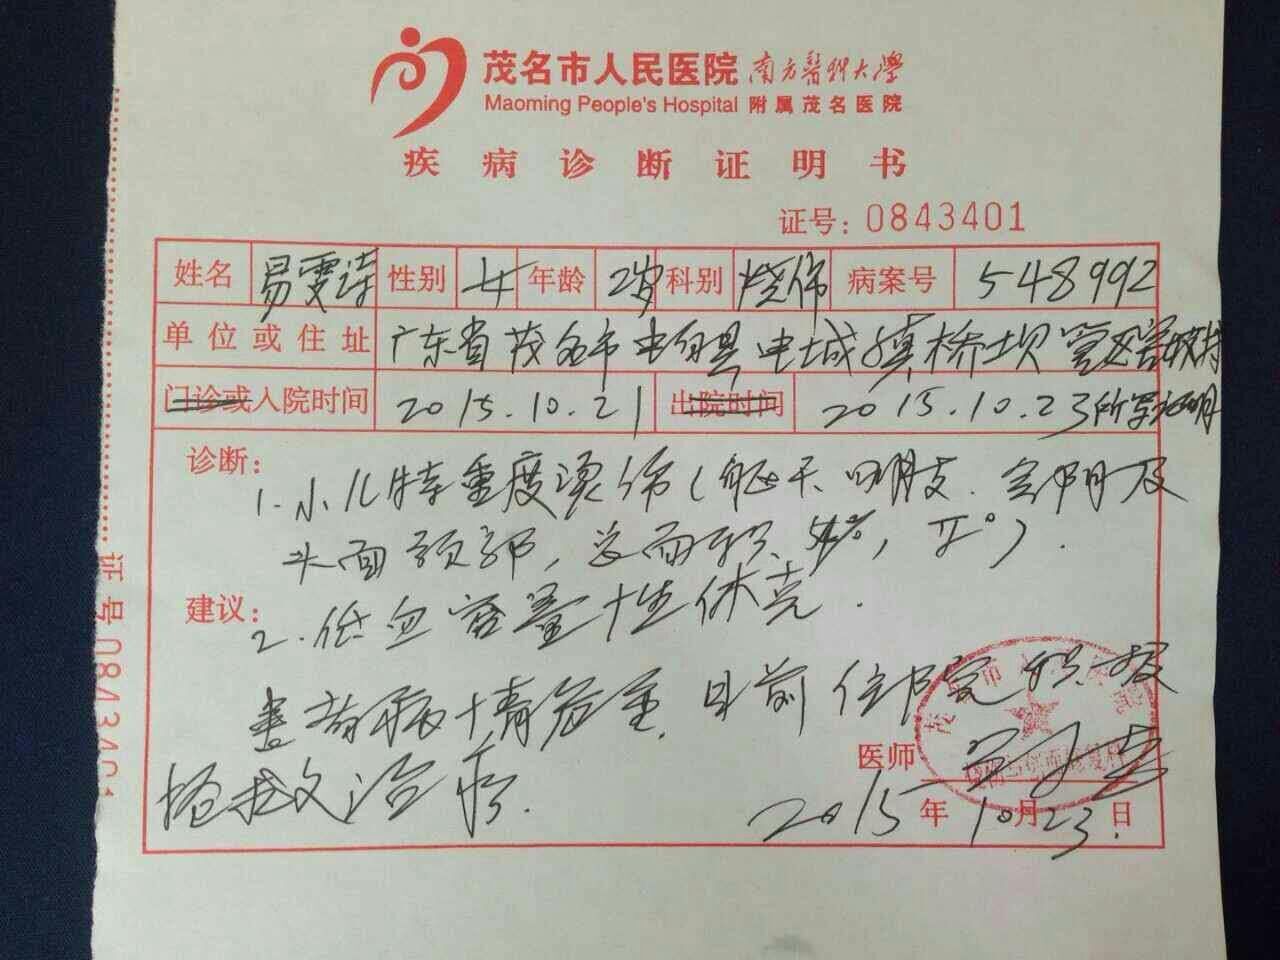 茂名市人民医院 南方医科大学
Maoming People's Hospital 附属茂名医院
疾病诊断证明书
证号: 0843401
姓名 易雯诗 性别 女 年龄 2岁 科别 烧伤 病案号 548992
单位或住址 广东省茂名市电白县电城镇桥坝管区
门诊或入院时间 2015.10.21 出院时间 2015.10.23所写证明
诊断:
1.小儿特重度烫伤(躯干、四肢、会阴及
头面颈部,总面积 ,II°).
建议:
2.低血容量性休克.
患者病情危重,目前住院积极
抢救治疗.
医师
2015年10月23日
证号0843401